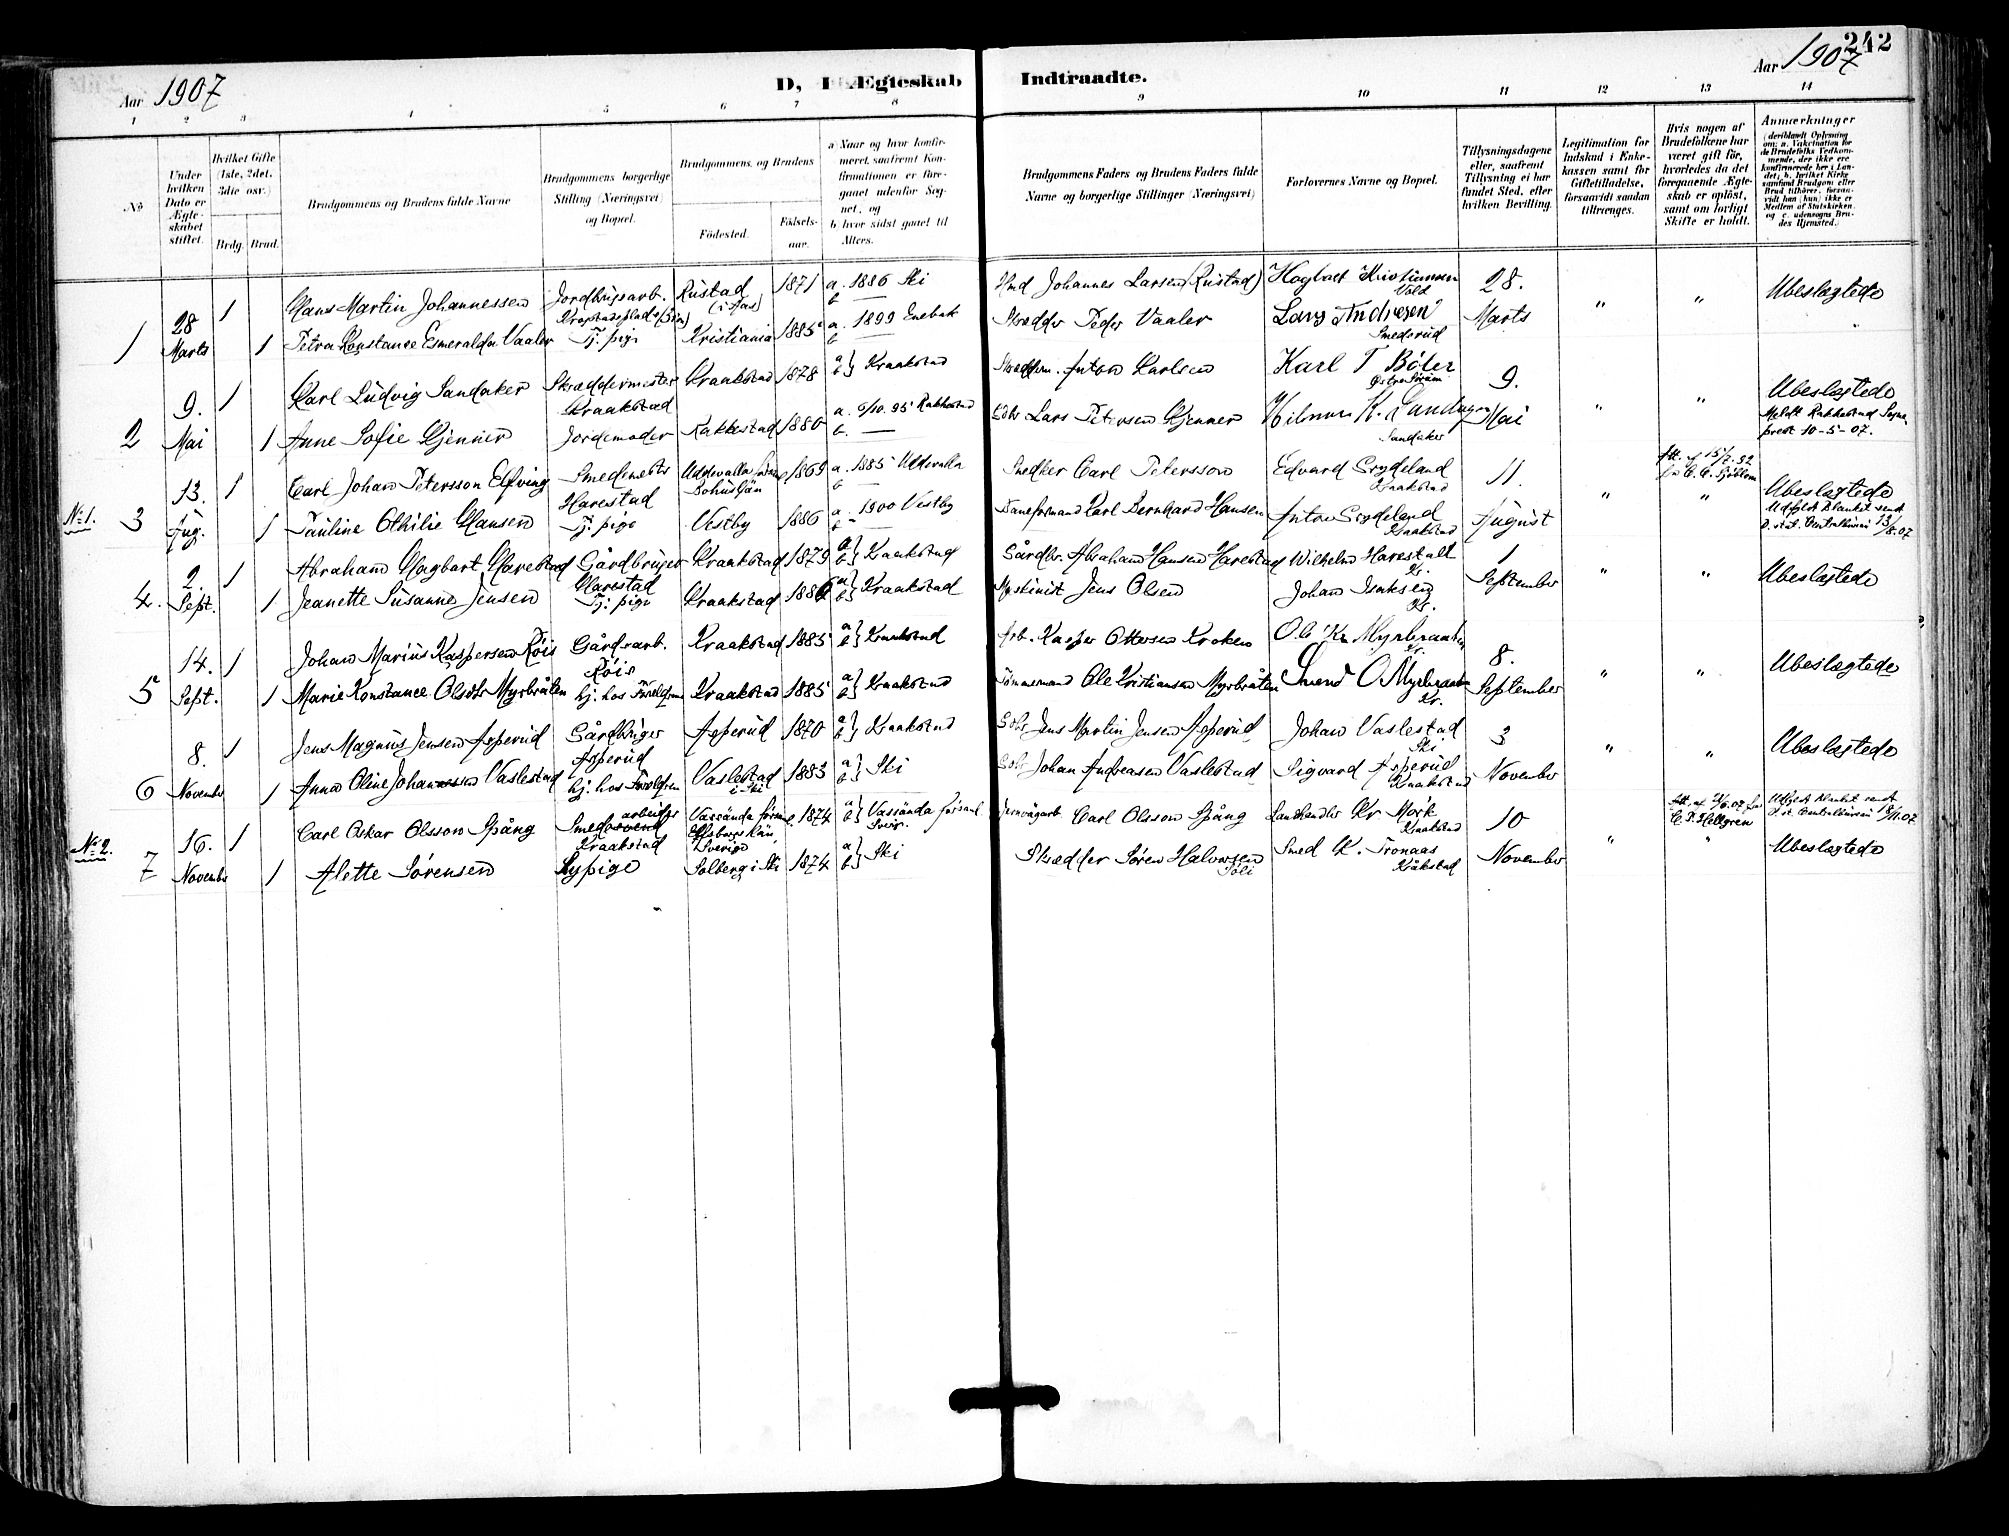 242
Aar 1907
D, I Ægteskab Indtraadte.
Aar 1907
1 2 3 4 5 6 7 8 9 10 11 12 13 14
No
Under hvilken Dato er Ægteskabet stiftet.
Hvilket Gifte (1ste, 2det, 3die osv.)
Brdg. Brud.
Brudgommens og Brudens fulde Navne
Brudgommens borgerlige Stilling (Næringsvei) og Bopæl.
Brudgommens og Brudens
Fødested. Fødselsaar.
a Naar og hvor konfirmeret, saafremt Konfirmationen er foregaaet udenfor Sognet, og
b hvor sidst gaaet til Alters.
Brudgommens Faders og Brudens Faders fulde Navne og borgerlige Stillinger (Næringsvei)
Forlovernes Navne og Bopæl.
Tillysningsdagene eller, saafremt Tillysning ei har fundet Sted, efter hvilken Bevilling.
Legitimation for Indskud i Enkekassen samt for Giftetilladelse, forsaavidt saadan tiltrænges.
Hvis nogen af Brudefolkene har været gift før, hvorledes da det foregaaende Ægteskab er opløst, samt om lovligt Skifte er holdt.
Anmærkninger
1 28 Marts
1 Hans Martin Johannessen Jordbrugsarb. Rustad (i Aas) 1871 a. 1886 Ski b — Johannes Larsen (Rustad) Hagbart Kristiansen Vold 28. Marts " " Ubeslægtede
1 Petra Konstance Esmeralda Vaaler Tj. pige Kristiania 1885 a. 1899 Enebak b — Skrædder Peder Vaaler Lars Andresen Smederud
2 9. Mai
1 Karl Ludvig Sandaker Skræddermester Kraakstad Kraakstad 1878 a b} Kraakstad Anton Karlsen Karl T Bøler 9. Mai " " Ubeslægtede
1 Anne Sofie Gjenner Jordemoder Rakkestad 1880 a. 9/10. 95 Rakkestad b. — Lars Petersen Gjenner Hilmar K. Sandaker
Meldt Rakkestad Sogneprest 10-5-07.
No 1. 3 13. Aug.
1 Carl Johan Petersson Elfving Smedmester Harestad Uddevalla Bohuslän 1869 a. 1885 Uddevalla b — Snedker Carl Petersson Edvard Grydeland Kraakstad 11. August " " Ubeslægtede
1 Pauline Othilie Hansen Tj. pige Vestby 1886 a. 1900 Vestby b — Baneformand Karl Bernhard Hansen Anton Grydeland Kraakstad
Udfyldt Blanket sendt D. stat. Centralbureau 13/8.07
4. 2. Sept.
1 Abraham Hagbart Harestad Gårdbruger Harestad Kraakstad 1879 a b} Kraakstad Gårdbr. Abraham Hansen Harestad Wilhelm Harestad Kr. 1 September " " Ubeslægtede
1 Jeanette Susanne Jensen Tj. pige Kraakstad 1886 a b} Kraakstad Maskinist Jens Olsen Johan Isaksen Kr.
5 14. Sept.
1 Johan Marius Kaspersen Røis Gårdarb. Røis Kraakstad 1885 a b} Kraakstad Arb. Kasper Ottersen Kroken Ole Kr Myrbraaten Kr. 8. September " " Ubeslægtede
1 Marie Konstance Olsdtr Myrbråten hj. hos Foreldrene Kraakstad 1885 a b} Kraakstad Tømmermand Ole Kristiansen Myrbråten Svend O Myrbraaten Kr.
6 8. November
1 Jens Magnus Jensen Asperud Gårdbruger Asperud Asperud 1870 a b} Kraakstad Gbr. Jens Martin Jensen Asperud Johan Vaslestad Ski 3 November " " Ubeslægtede
1 Anna Oline Johannessen Vaslestad hj. hos Foreldrene Vaslestad i Ski 1883 a b} Ski Gbr. Johan Andreasen Vaslestad Sigvard Asperud Kraakstad
No 2. 7 16. November
1 Carl Oskar Olsson Spång Smedarbeider Kraakstad Vassända Elfsborgs Län Sverige 1874 a b} Vassända Sverige Carl Olsson Spång Landhandler Kr Mørk Kraakstad 10 November " " Ubeslægtede
Udfyldt Blanket sendt D. st. Centralbureau 18/11.07
1 Alette Sørensen Sypige Solberg i Ski 1874 a b} Ski Skrædder Søren Halvorsen Smed K. Tronaas Kråkstad